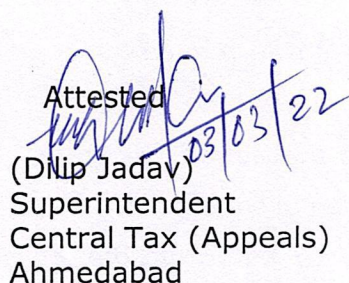 Attested
03/03/22
(Dilip Jadav)
Superintendent
Central Tax (Appeals)
Ahmedabad